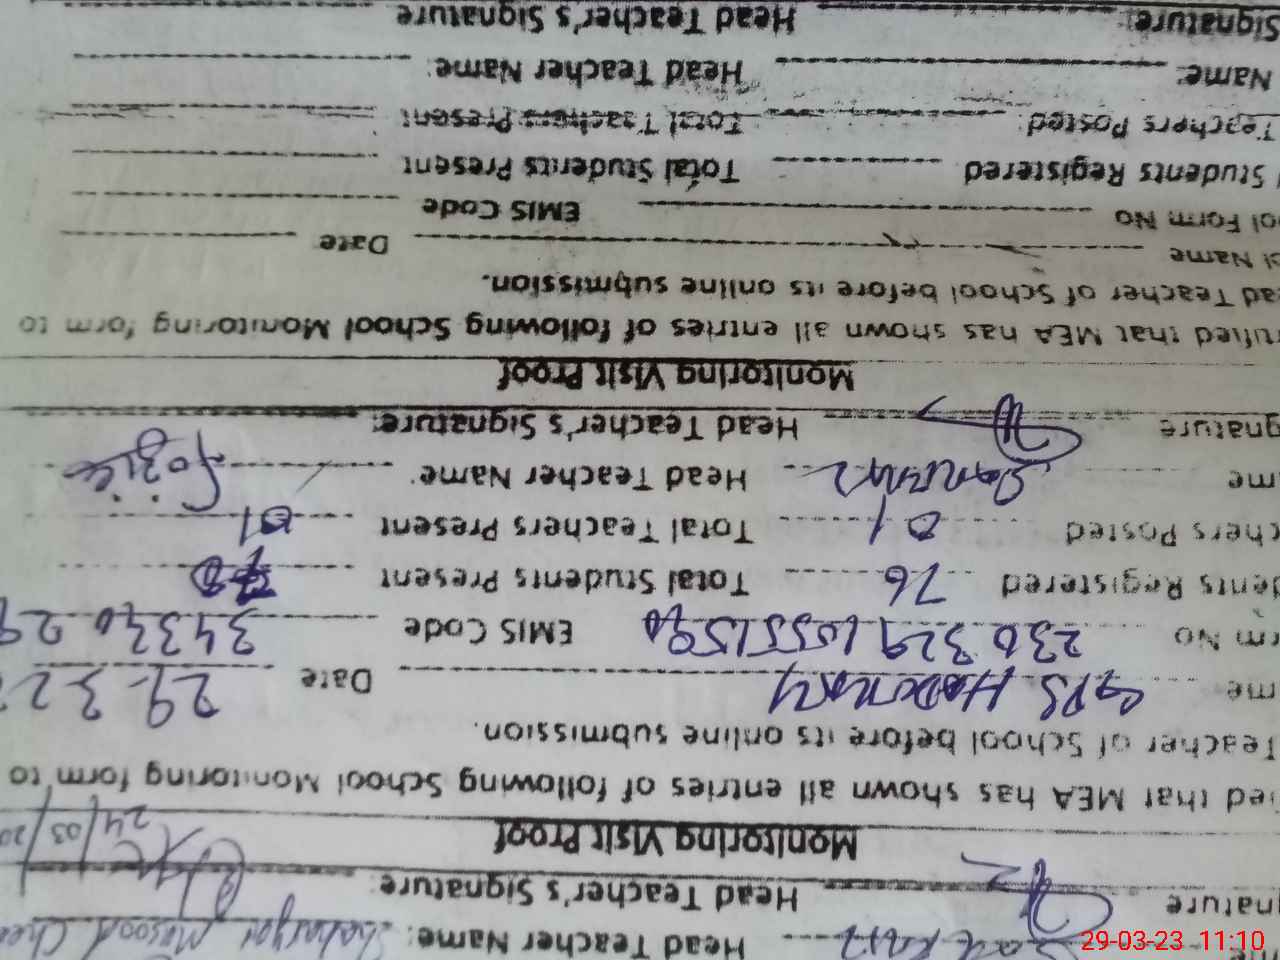 Head Teacher Name:
gnature Head Teacher's Signature:
24/03/20
Monitoring Visit Proof
ied that MEA has shown all entries of following School Monitoring form to
Teacher of School before its online submission.
me GPS Date 29.3.2
rm No EMIS Code
dents Registered 76 Total Students Present
chers Posted 01 Total Teachers Present 01
me Head Teacher Name: Fozia
gnature Head Teacher's Signature:
Monitoring Visit Proof
tified that MEA has shown all entries of following School Monitoring form to
ead Teacher of School before its online submission.
ol Name Date
ool Form No EMIS Code
l Students Registered Total Students Present
Teachers Posted Total Teachers Present
Name: Head Teacher Name:
Signature: Head Teacher's Signature
29-03-23 11:10